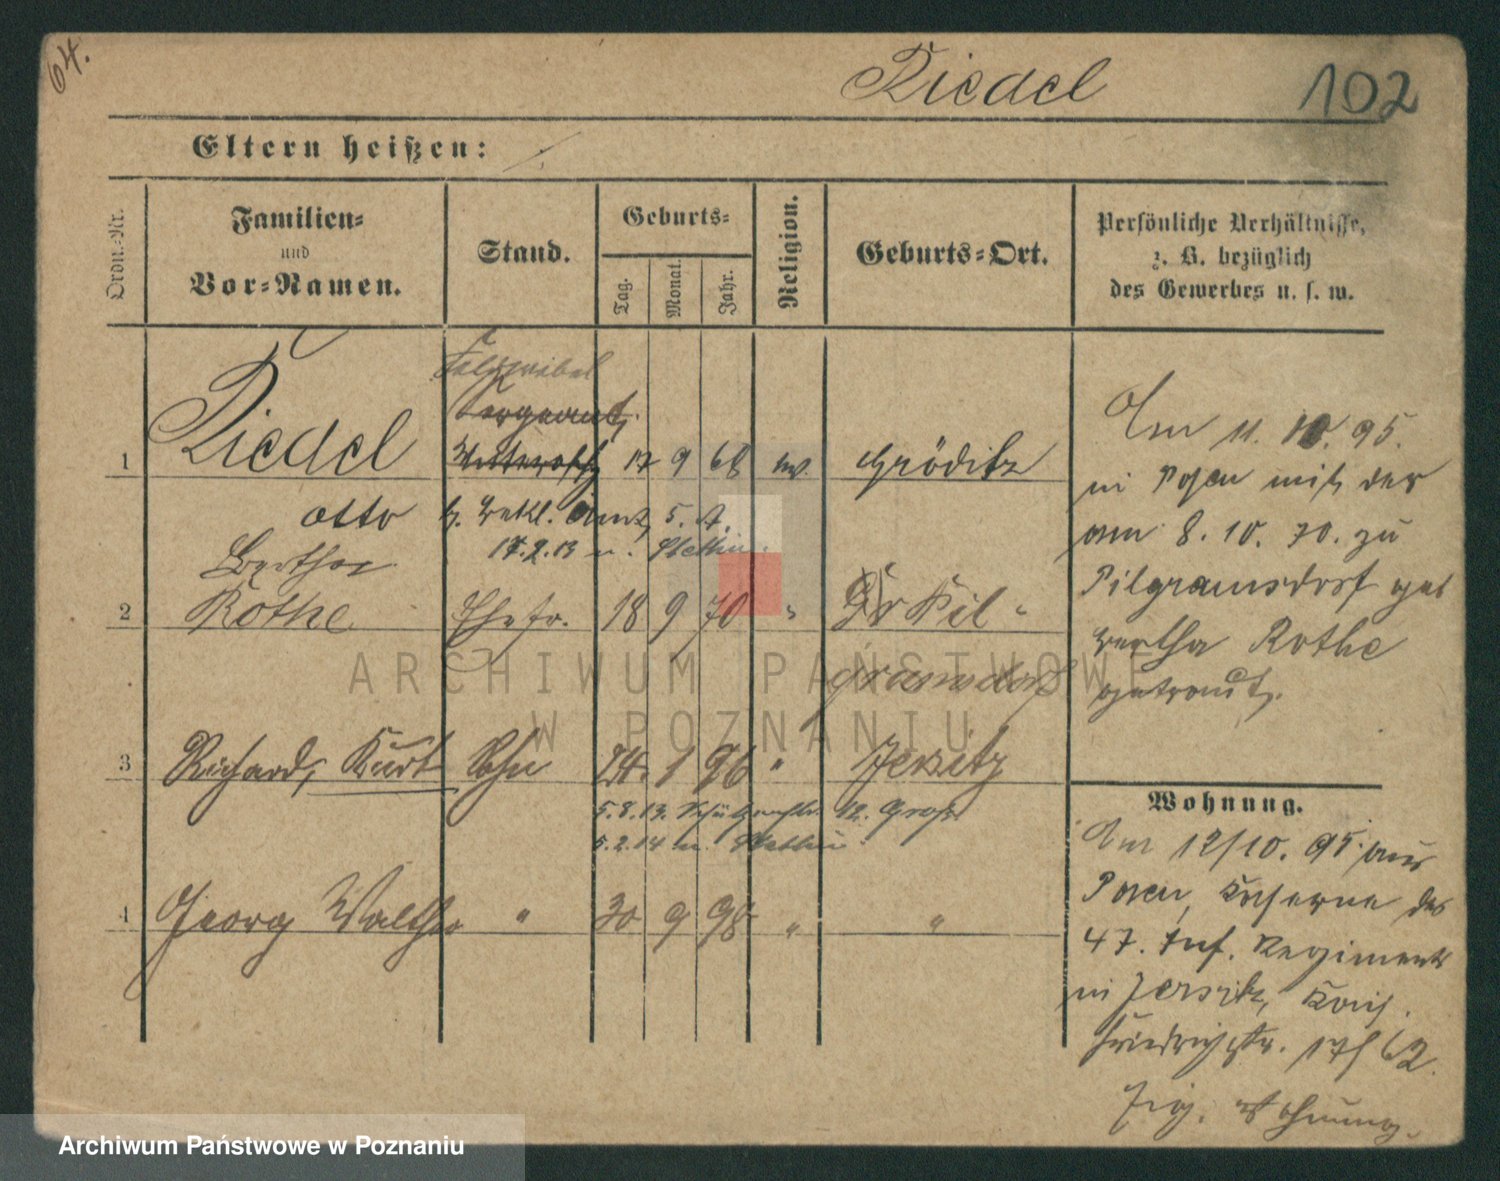 64.
Riedel
102
Eltern heißen:
Ordn.-Nr.
Familien-
und
Vor-Namen.
Stand.
Geburts-
Tag.
Monat.
Jahr.
Religion.
Geburts-Ort.
Persönliche Verhältnisse,
z. B. bezüglich
des Gewerbes u. s. w.
Feldwebel
Sergeant
1 Riedel Unteroffz 17 9 68 ev. Gröditz
Otto
5. A.
17.2.13 n. Stettin.
Bertha
2 Rothe Ehefr. 18 9 70 " Gr Pil-
gramsdorf
3 Richard, Kurt Sohn 24. 1 96 " Jersitz
5.8.13. 12. Gross
5.2.14 n. Stettin
4 Georg Walther " 30 9 98 " "
Am 11. 10. 95.
in Posen mit der
am 8. 10. 70. zu
Pilgramsdorf geb
Bertha Rothe
getraut.
Wohnung.
Am 12/10. 95. aus
Posen, Kaserne des
47. Inf. Regiments
in Jersitz, Kais.
Friedrichstr. 62.
Wohnung.
ARCHIWUM PAŃSTWOWE
W POZNANIU
Archiwum Państwowe w Poznaniu